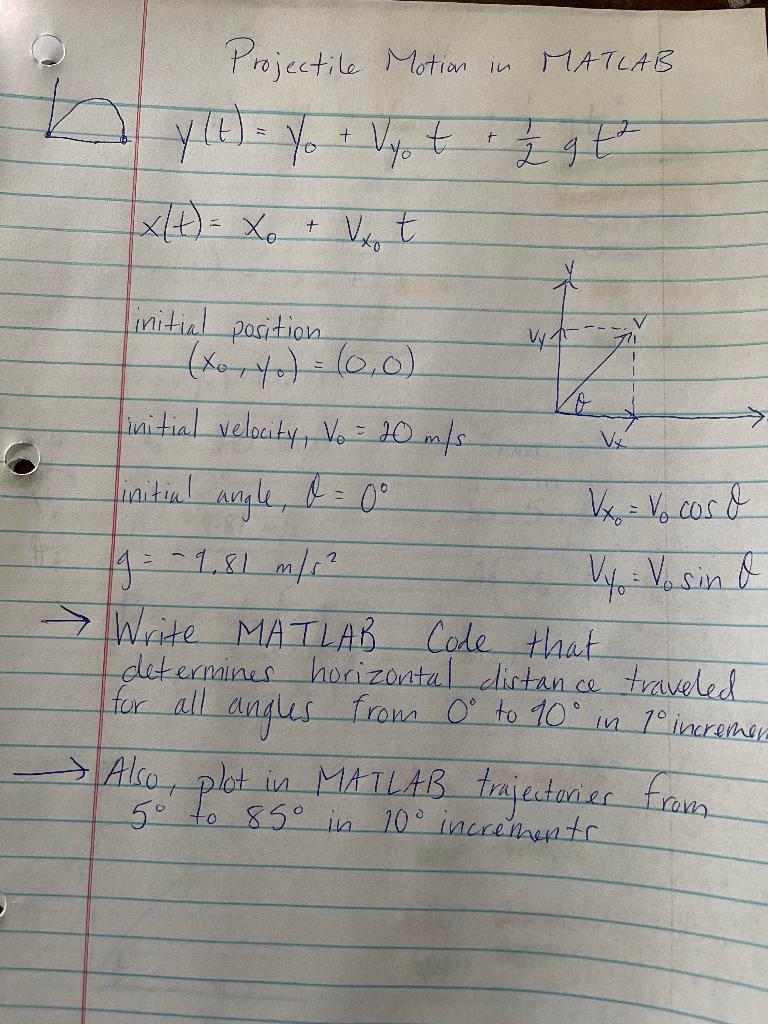 Projectile Motion in MATLAB
y(t) = y₀ + Vy₀ t + ½ g t²
x(t) = x₀ + Vx₀ t
y
Vy
V
θ
Vx
initial position
(x₀, y₀) = (0,0)
initial velocity, V₀ = 20 m/s
initial angle, θ = 0°
Vx₀ = V₀ cos θ
g = -9.81 m/s²
Vy₀ = V₀ sin θ
→ Write MATLAB Code that
determines horizontal distance traveled
for all angles from 0° to 90° in 1° incremen
→ Also, plot in MATLAB trajectories from
5° to 85° in 10° increments